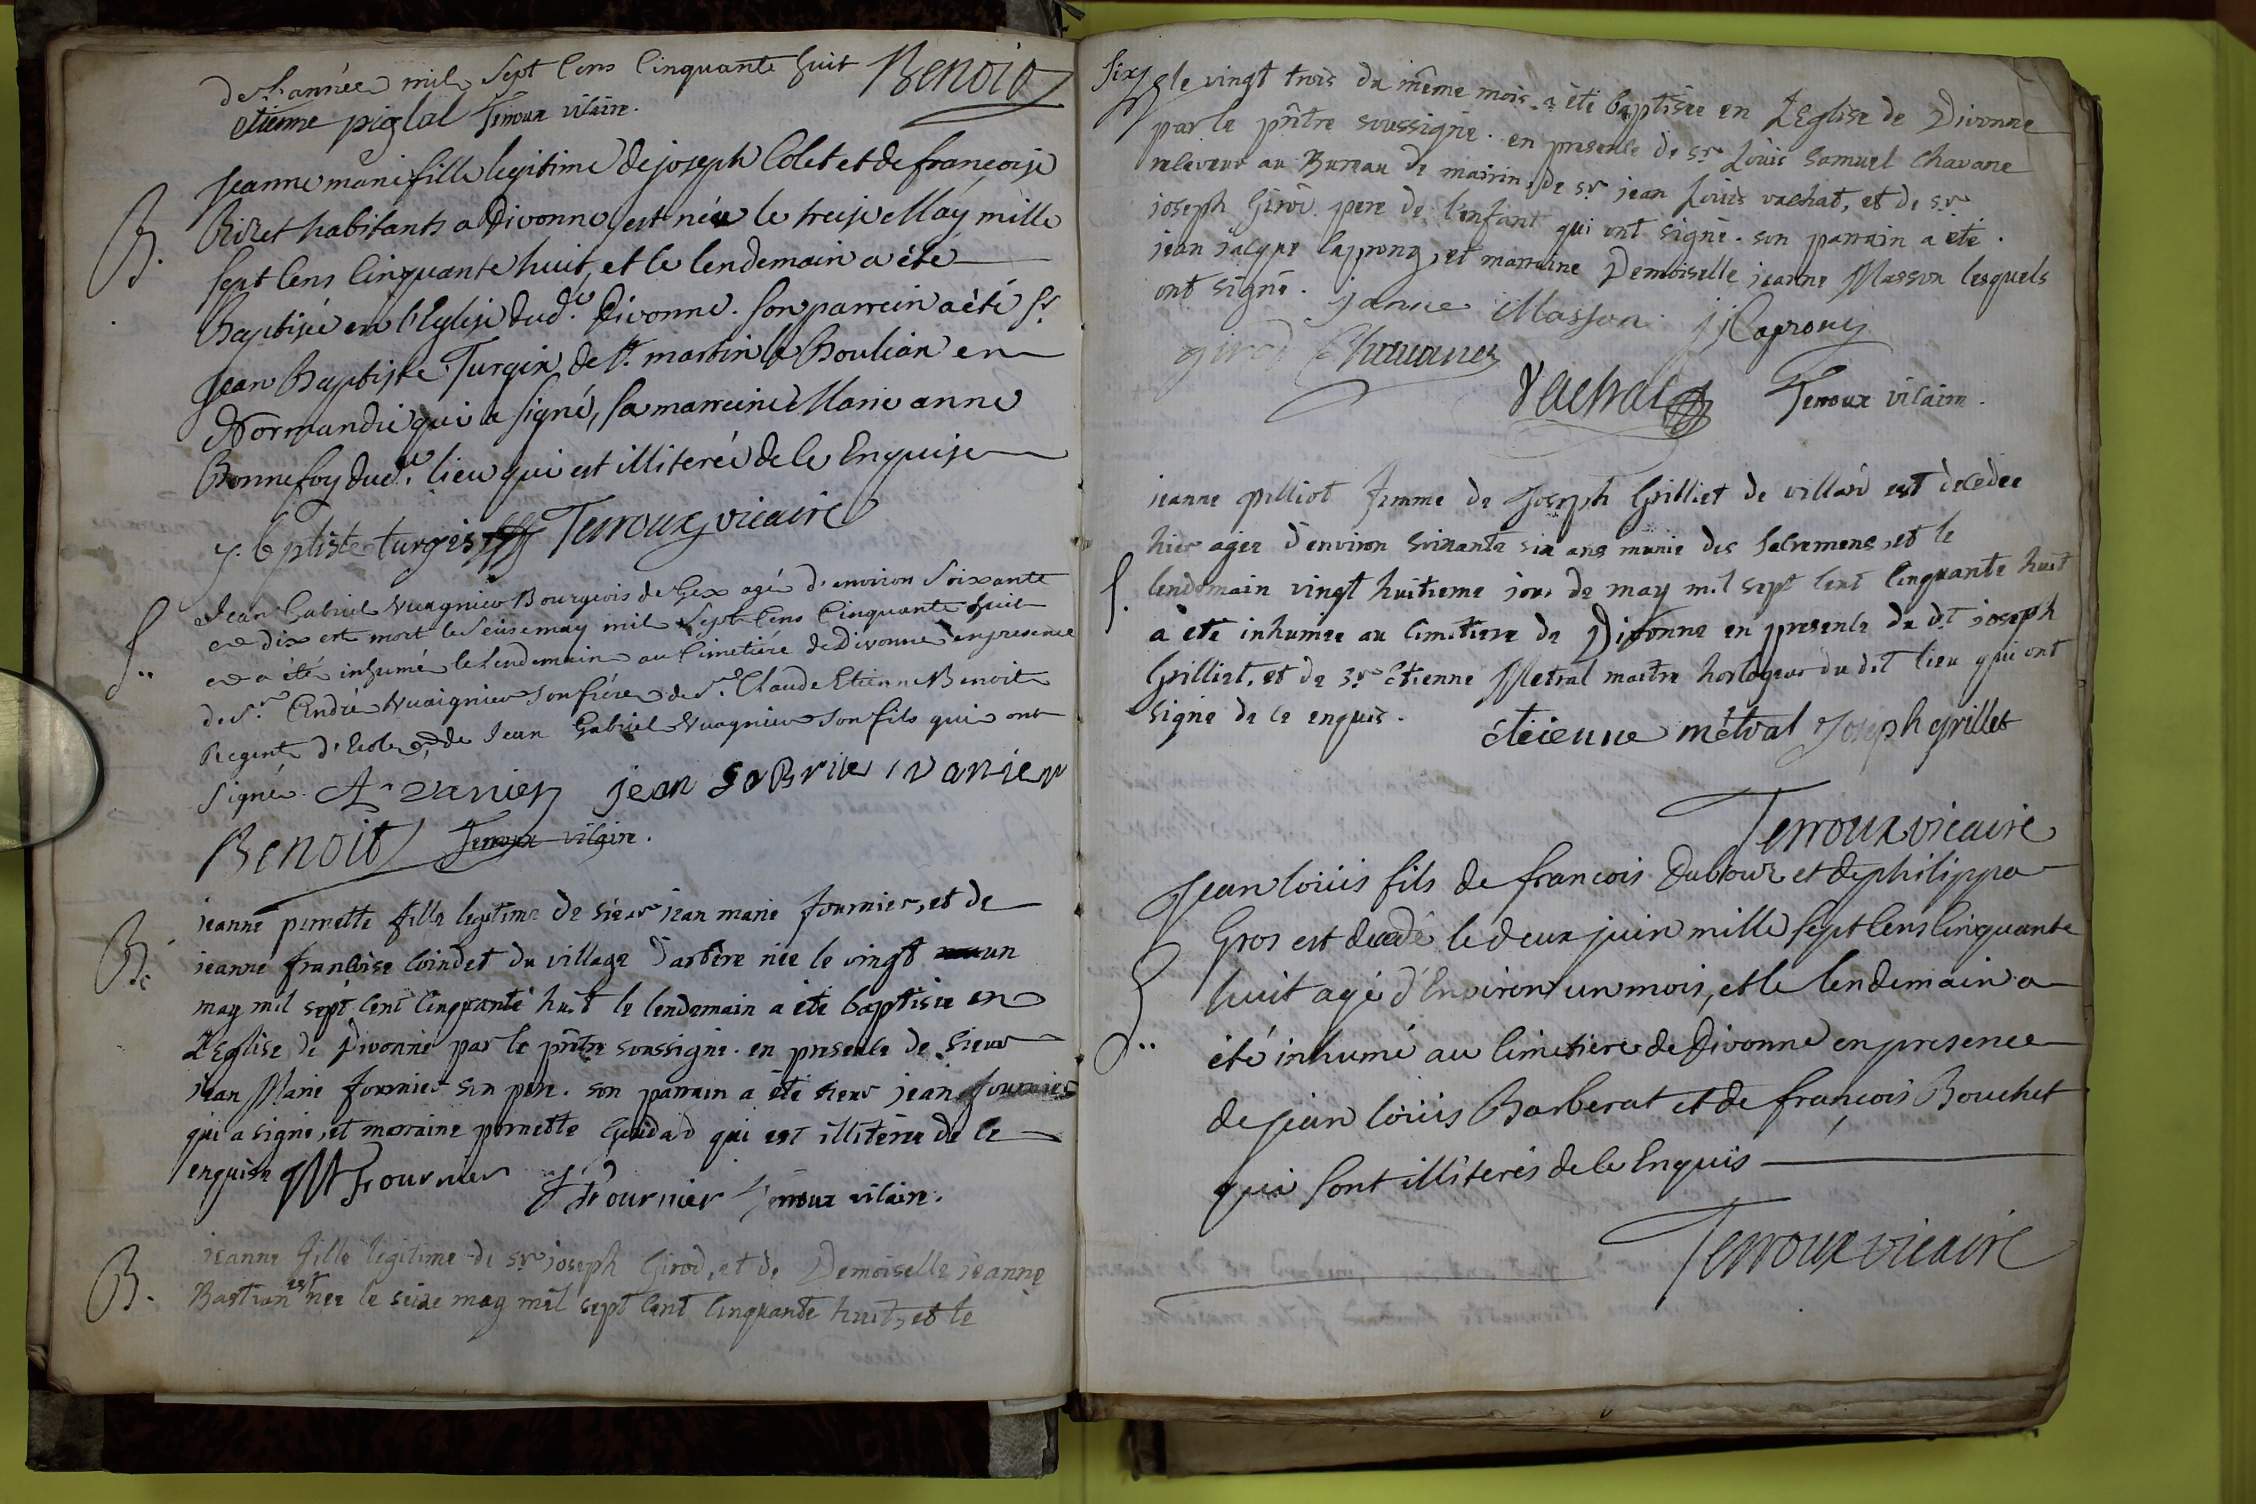 de l'année mil Sept Cens Cinquante huit Benoit
etienne piglal Terroux vicaire.
Jeanne marie fille legitime de joseph Colet et de françoise
B. Rizet habitants a Divonne est née le treise May mille
Sept Cens Cinquante huit, et le lendemain a été
Baptisée en l'Eglise dud.e Divonne. Son parrein a été Sr
Jean Baptiste Turgix de St. martin le Boulian en
Normandie qui a signé, sa marreine Marie anne
Bonnefoy dud.e lieu qui est illiterée de ce Enquise
J. bptiste turgis Terroux vicaire
Jean Gabriel Vuagnieu Bourgeois de Gex agé d'environ Soixante
S.. et dix est mort le Seise may mil Sept Cens Cinquante huit
et a été inhumé le lendemain au Cimetiére de Divonne en presence
de Sr. André Vuaignieu son frére de Sr. Claude Etienne Benoit
Regent d'Ecole et de Jean Gabriel Vuagnieu son fils qui ont
signé. A vanien jean gabriie vvanien
Benoit Terroux vicaire.
jeanne pernette fille legitime de sieur jean marie fournier, et de
B. jeanne francoise Coindet du village d'arbere née le vingt un
may mil sept cent cinquante huit le lendemain a été baptisée en
L'Eglise de Divonne par le pñtre soussigné. en presence de sieur
jean Marie fournier son pere. son parrain a été sieur jean fournier
qui a signé, et marraine pernette Goudad qui est illiterée de ce
enquise JM fournier J fournier Terroux vicaire.
jeanne fille legitime de sr joseph Girod, et de Demoiselle jeanne
B. Bastian est née le seize may mil sept cent cinquante huit, et le
six le vingt trois du même mois. a été baptisée en L'Eglise de Divonne
par le pñtre soussigné. en presence de sr. Louis Samuel Chavane
releveur au Bureau de mairin, de sr jean Louis vachat, et de sr
joseph Girod. pere de l'enfant qui ont signé. son parrain a été.
jean jacque Caprony, et marraine Demoiselle jeanne Masson lesquels
ont signé. janne Masson. J J Caprony
girod Chavanes
Vachat Terroux vicaire.
jeanne pilliot femme de Joseph Grilliet de villard est décedee
hier agee d'environ soixante six ans munie des Sacremens, et le
S. lendemain vingt huitieme jour de may mil sept cent cinquante huit
a été inhumee au cimetiere de Divonne en presence du dt joseph
Grilliet, et de sr etienne Metral maitre horlogeur du dit lieu qui ont
signé de ce enquis. étieunne métral Joseph grillet
Terroux vicaire
Jean loüis fils de francois Dubrouz et de philippa
Gros est decedé le deux juin mille Sept Cens Cinquante
S.. huit agé d'Environ un mois, et le lendemain a
été inhumé au Cimetiére de Divonne en presence
de jean loüis Barberat et de françois Bouchet
qui Sont illiterés de ce Enquis
Terroux vicaire